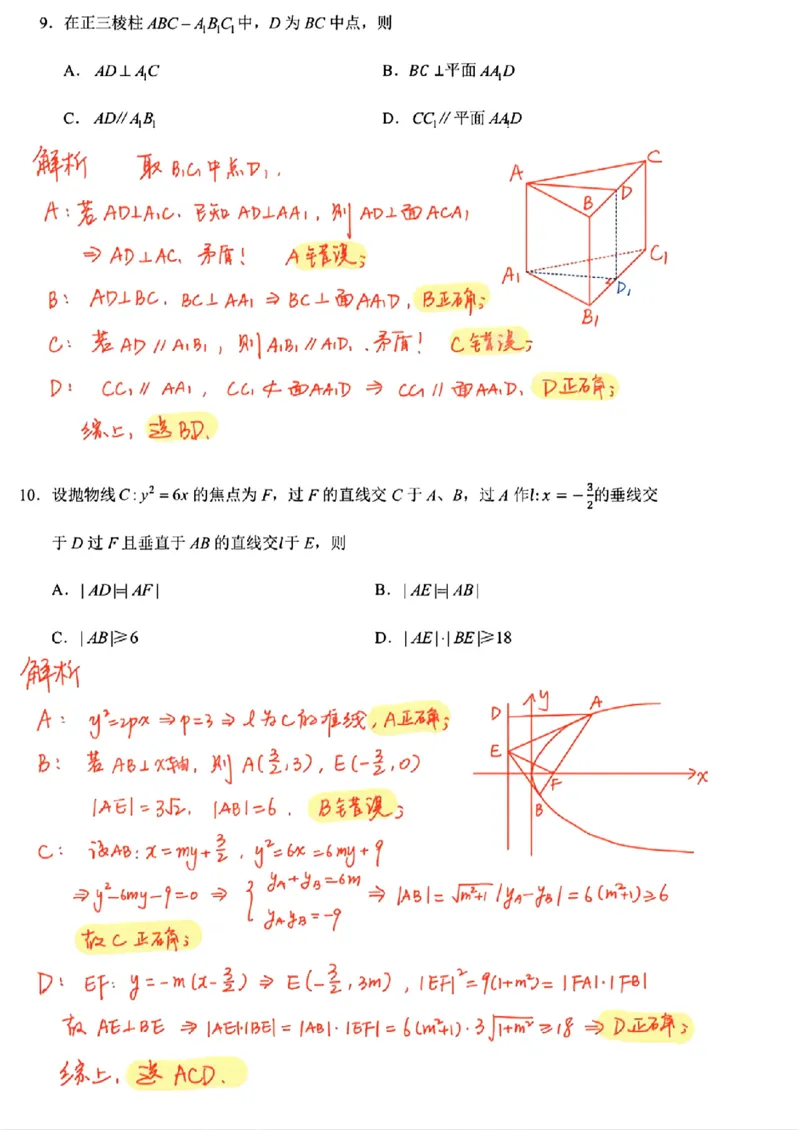 9. 在正三棱柱 ABC－A₁B₁C₁中，D 为 BC 中点，则
A. AD⊥A₁C B. BC⊥平面 AA₁D
C. AD∥A₁B₁ D. CC₁∥平面 AA₁D
解析 取B₁C₁中点D₁.
A：若AD⊥A₁C. 已知AD⊥AA₁，则AD⊥面ACA₁
⇒AD⊥AC，矛盾！ A错误；
B：AD⊥BC，BC⊥AA₁⇒BC⊥面AA₁D，B正确；
C：若AD∥A₁B₁，则A₁B₁∥A₁D₁，矛盾！ C错误；
D：CC₁∥AA₁，CC₁⊄面AA₁D⇒CC₁∥面AA₁D，D正确；
综上，选BD.
A
B
D
C
A₁
B₁
D₁
C₁
10. 设抛物线 C: y² = 6x 的焦点为 F，过 F 的直线交 C 于 A、B，过 A 作l: x = −3/2的垂线交
于 D 过 F 且垂直于 AB 的直线交l于 E，则
A. |AD|=|AF| B. |AE|=|AB|
C. |AB|⩾6 D. |AE|·|BE|⩾18
解析
A：y²=2px⇒p=3⇒l为C的准线，A正确；
B：若AB⊥x轴，则A(3/2,3)，E(-3/2,0)
|AE|=3√2，|AB|=6. B错误；
C：设AB：x=my+3/2，y²=6x=6my+9
⇒y²-6my-9=0⇒{y_A+y_B=6m y_Ay_B=-9 ⇒|AB|=√(m²+1)|y_A-y_B|=6(m²+1)≥6
故C正确；
D：EF：y=-m(x-3/2)⇒E(-3/2,3m)，|EF|²=9(1+m²)=|FA|·|FB|
故AE⊥BE⇒|AE|·|BE|=|AB|·|EF|=6(m²+1)·3√(1+m²)≥18⇒D正确；
综上，选ACD.
D
y
A
E
F
x
B